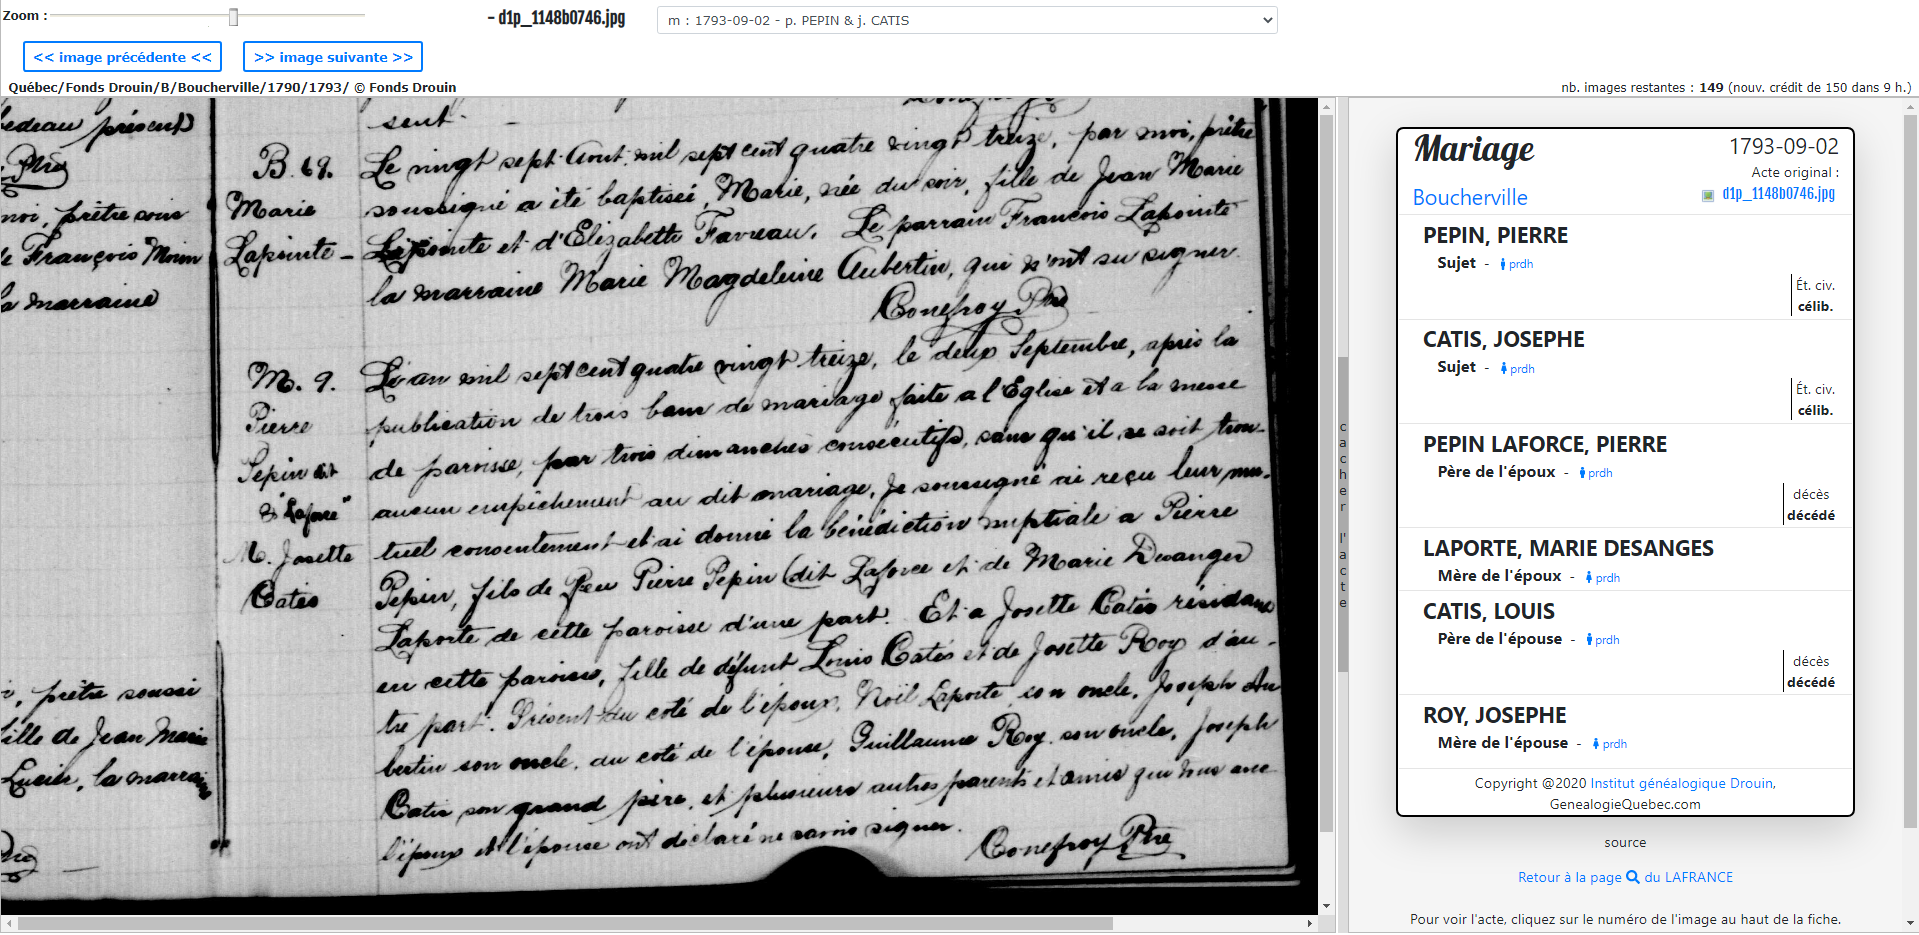 Zoom :
- d1p_1148b0746.jpg
m : 1793-09-02 - p. PEPIN & j. CATIS
<< image précédente <<
>> image suivante >>
Québec/Fonds Drouin/B/Boucherville/1790/1793/ © Fonds Drouin
nb. images restantes : 149 (nouv. crédit de 150 dans 9 h.)
bedeau présent
Ptre
moi, prêtre sous
de François Morin
la marraine
i, prêtre soussi
fille de Jean Marie
Lucier, la marraine
B. 69.
Marie
Lapointe -
sent. -
Le vingt sept Aout, mil sept cent quatre vingt treize, par moi, prêtre
soussigné a été baptisée, Marie, née du soir, fille de Jean Marie
Lapointe et d'Elizabeth Favreau. Le parrain François Lapointe
la marraine Marie Magdeleine Aubertin, qui n'ont su signer.
Conefroy Ptre
M. 9.
Pierre
Pepin dit
"Laforce"
&
M. Josette
Catis
L'an mil sept cent quatre vingt treize, le deux Septembre, après la
publication de trois bans de mariage faite a l'Eglise et a la messe
de paroisse, par trois dimanches consécutifs, sans qu'il se soit trou-
aucun empêchement au dit mariage, Je soussigné ai reçu leur mu-
tuel consentement et ai donné la bénédiction nuptiale a Pierre
Pepin, fils de feu Pierre Pepin (dit Laforce et de Marie Desanges
Laporte de cette paroisse d'une part. Et a Josette Catis résidane
en cette paroisse, fille de défunt Louis Catis et de Josette Roy d'au-
tre part. Présent du coté de l'époux, Noël Laporte son oncle, Joseph Au
bertin son oncle, du coté de l'épouse, Guillaume Roy son oncle, Joseph
Catis son grand père, et plusieurs autres parents et amis qui tous avec
l'époux et l'épouse ont déclaré ne savoir signer.
Conefroy Ptre
cacher l'acte
Mariage
1793-09-02
Acte original :
Boucherville
d1p_1148b0746.jpg
PEPIN, PIERRE
Sujet - prdh
Ét. civ.
célib.
CATIS, JOSEPHE
Sujet - prdh
Ét. civ.
célib.
PEPIN LAFORCE, PIERRE
Père de l'époux - prdh
décès
décédé
LAPORTE, MARIE DESANGES
Mère de l'époux - prdh
CATIS, LOUIS
Père de l'épouse - prdh
décès
décédé
ROY, JOSEPHE
Mère de l'épouse - prdh
Copyright @2020 Institut généalogique Drouin,
GenealogieQuebec.com
source
Retour à la page du LAFRANCE
Pour voir l'acte, cliquez sur le numéro de l'image au haut de la fiche.